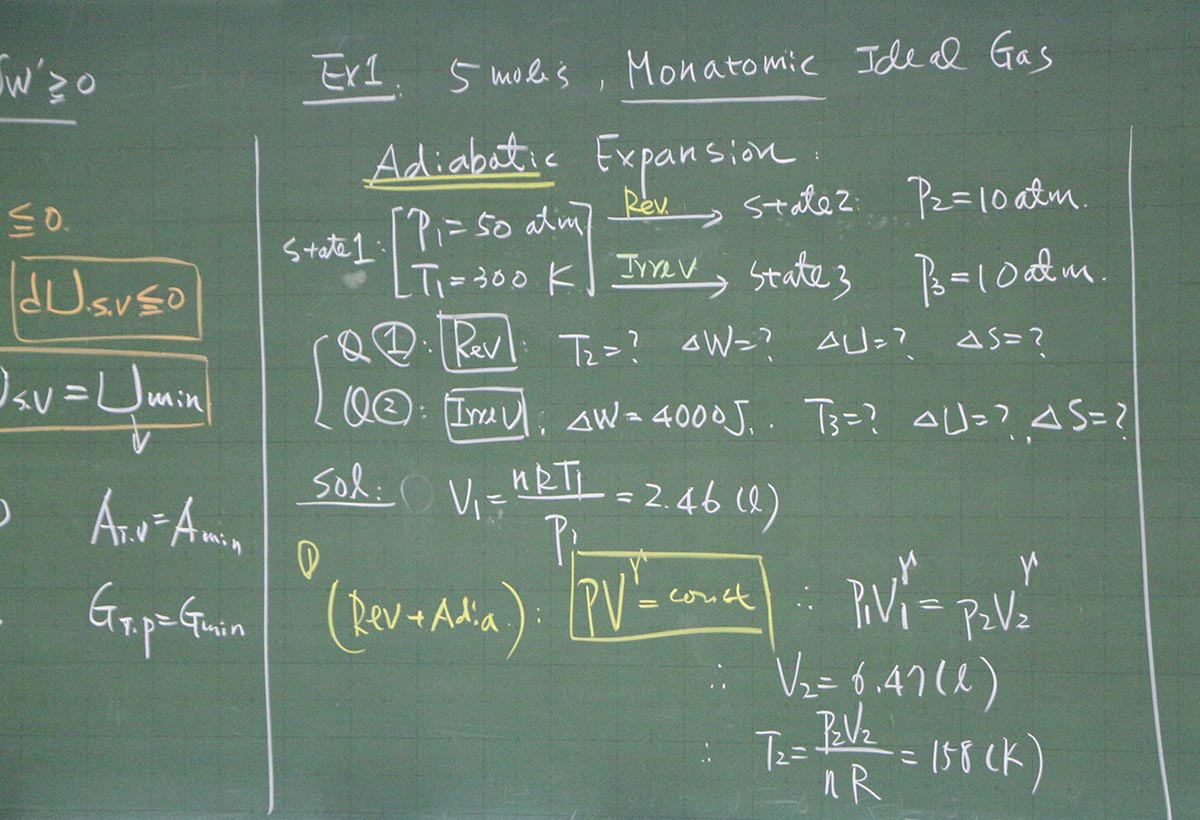 W' ≧ 0
≦ 0.
dU s.v ≦ 0
s.v = U min
A T.V = A min
G T.P = G min
Ex1. 5 moles, Monatomic Ideal Gas
Adiabatic Expansion:
State1: [P₁ = 50 atm T₁ = 300 K]
Rev. → State2: P₂ = 10 atm.
Irrev → State3 P₃ = 10 atm.
Q①: Rev T₂ = ? ΔW = ? ΔU = ? ΔS = ?
Q②: Irrev: ΔW = 4000J. T₃ = ? ΔU = ?, ΔS = ?
Sol: V₁ = nRT₁/P₁ = 2.46 (l)
①
(Rev + Adia.): PV^γ = const ∴ P₁V₁^γ = P₂V₂^γ
∴ V₂ = 6.47 (l)
∴ T₂ = P₂V₂/nR = 158 (K)